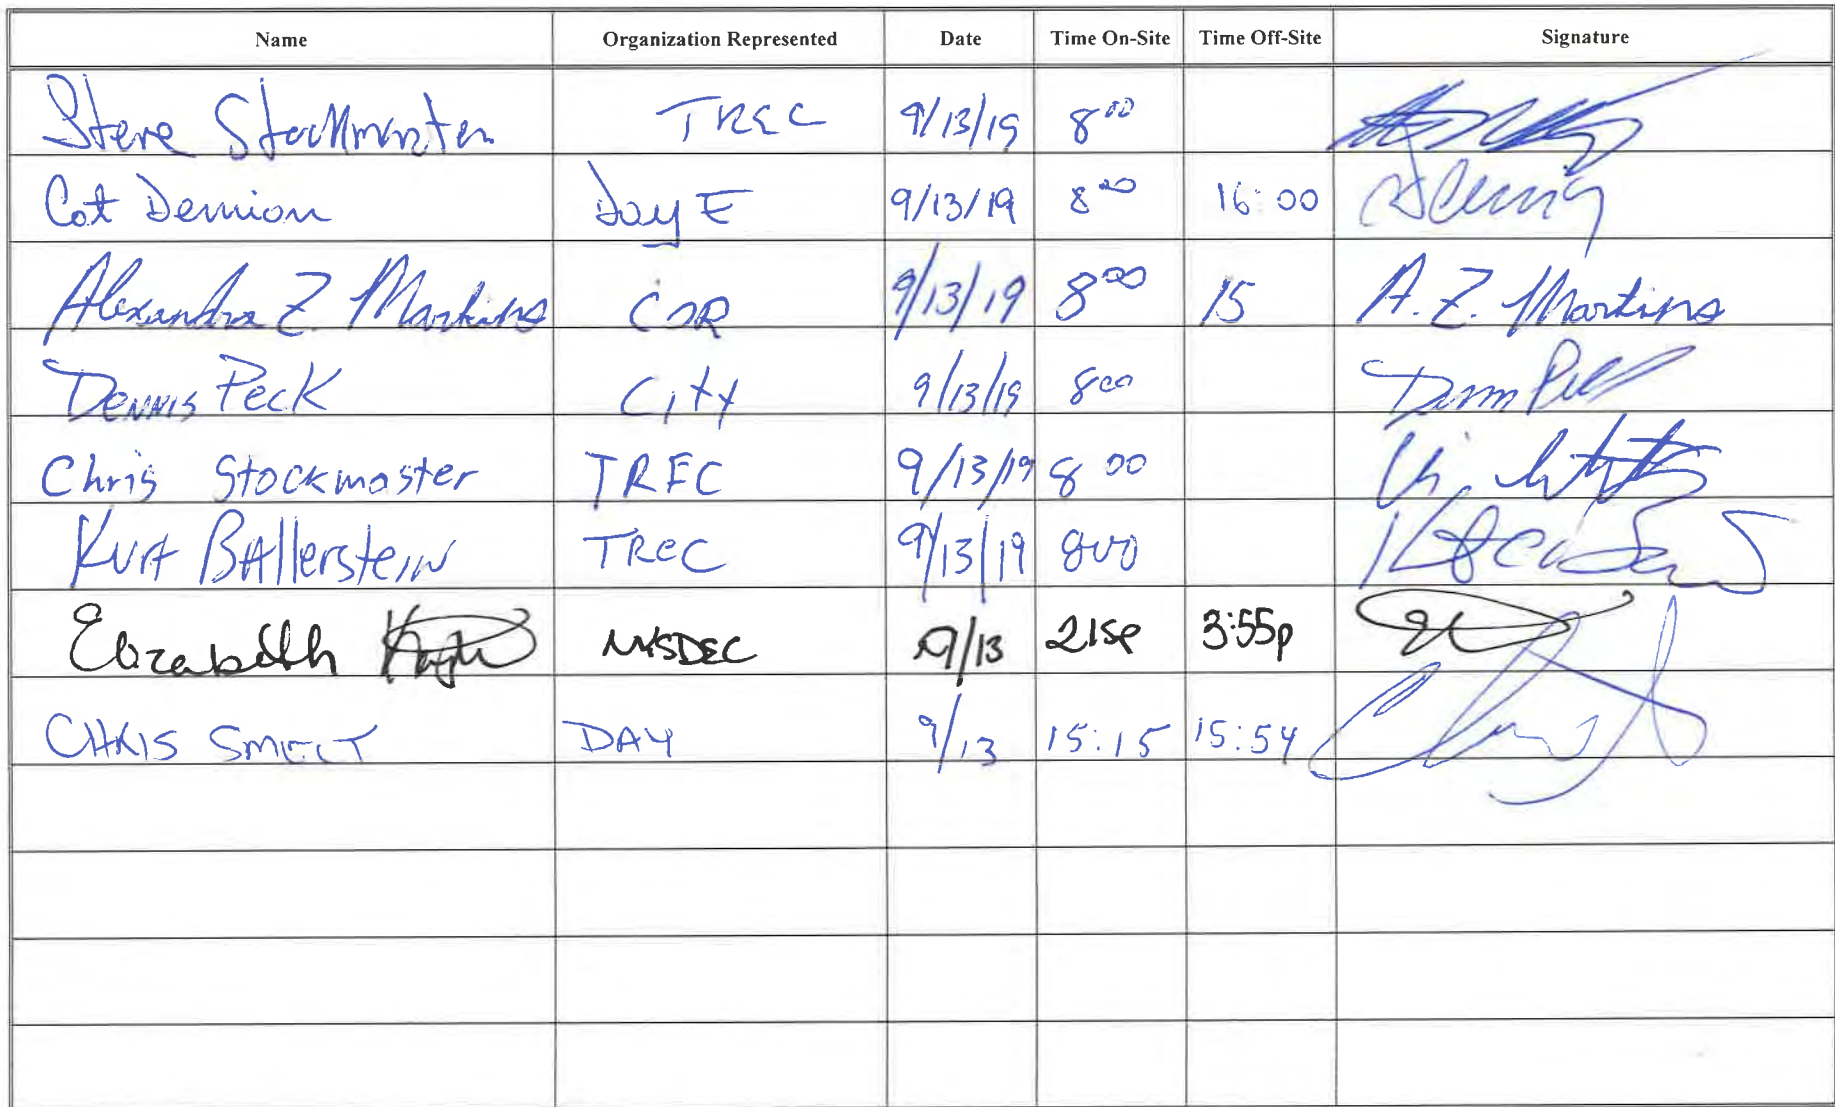 Name Organization Represented Date Time On-Site Time Off-Site Signature
Steve Stockmaster TREC 9/13/19 8⁰⁰
Cat Demion Day E 9/13/19 8⁰⁰ 16:00
Alexandra Z. Martins COR 9/13/19 8⁰⁰ 15 A. Z. Martins
Dennis Peck City 9/13/19 800
Chris Stockmaster TREC 9/13/19 8 00
Kurt BAllerstein TReC 9/13/19 800
Elizabeth NYSDEC 9/13 215p 3:55p
CHRIS SMELT DAY 9/13 15:15 15:54